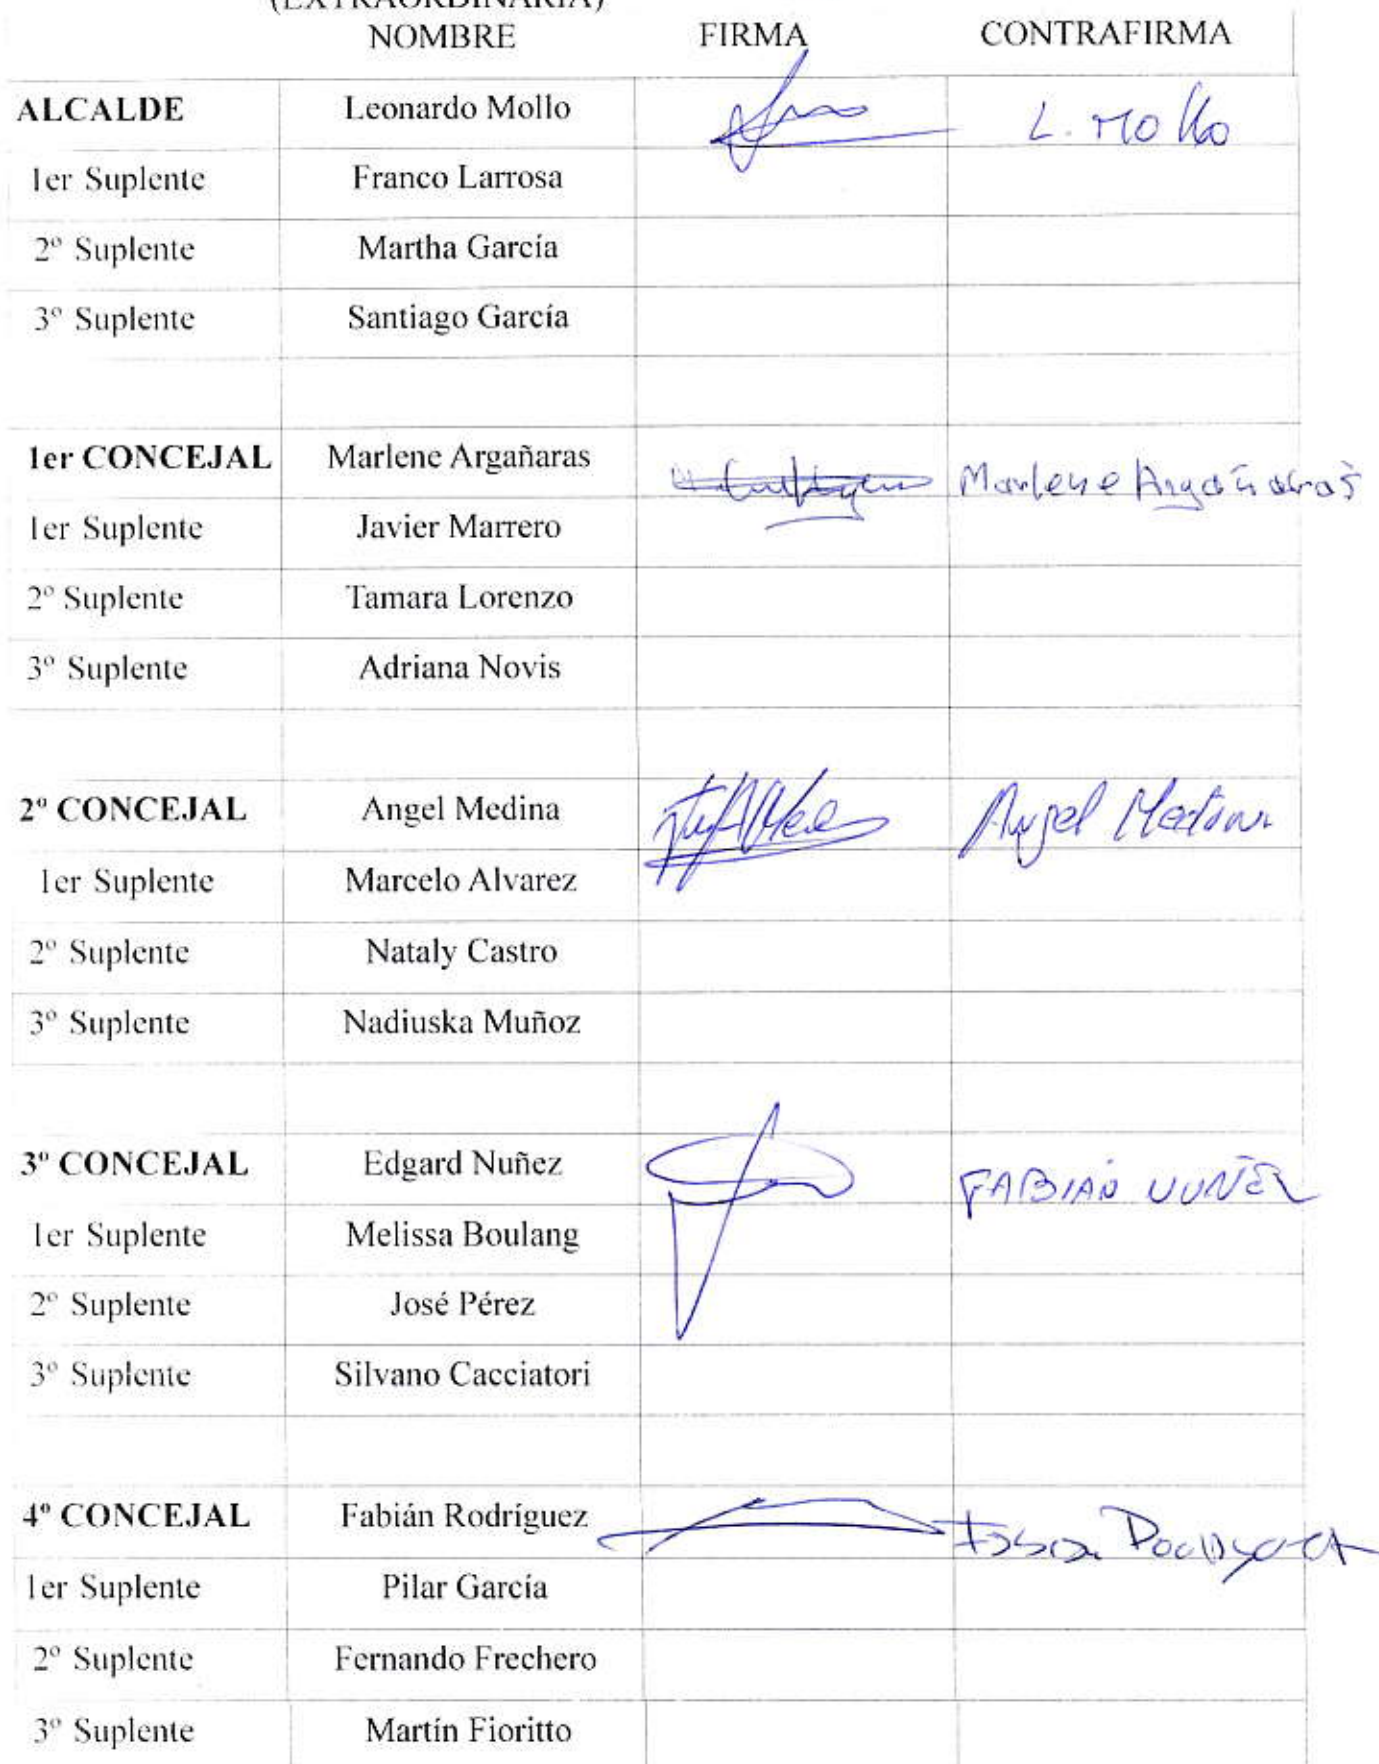 (EXTRAORDINARIA)
NOMBRE FIRMA CONTRAFIRMA
ALCALDE Leonardo Mollo L. Mollo
1er Suplente Franco Larrosa
2º Suplente Martha García
3º Suplente Santiago García
1er CONCEJAL Marlene Argañaras Marlene Argañaras
1er Suplente Javier Marrero
2º Suplente Tamara Lorenzo
3º Suplente Adriana Novis
2º CONCEJAL Angel Medina Angel Medina
1er Suplente Marcelo Alvarez
2º Suplente Nataly Castro
3º Suplente Nadiuska Muñoz
3º CONCEJAL Edgard Nuñez FABIAN NUÑEZ
1er Suplente Melissa Boulang
2º Suplente José Pérez
3º Suplente Silvano Cacciatori
4º CONCEJAL Fabián Rodríguez
1er Suplente Pilar García
2º Suplente Fernando Frechero
3º Suplente Martín Fioritto